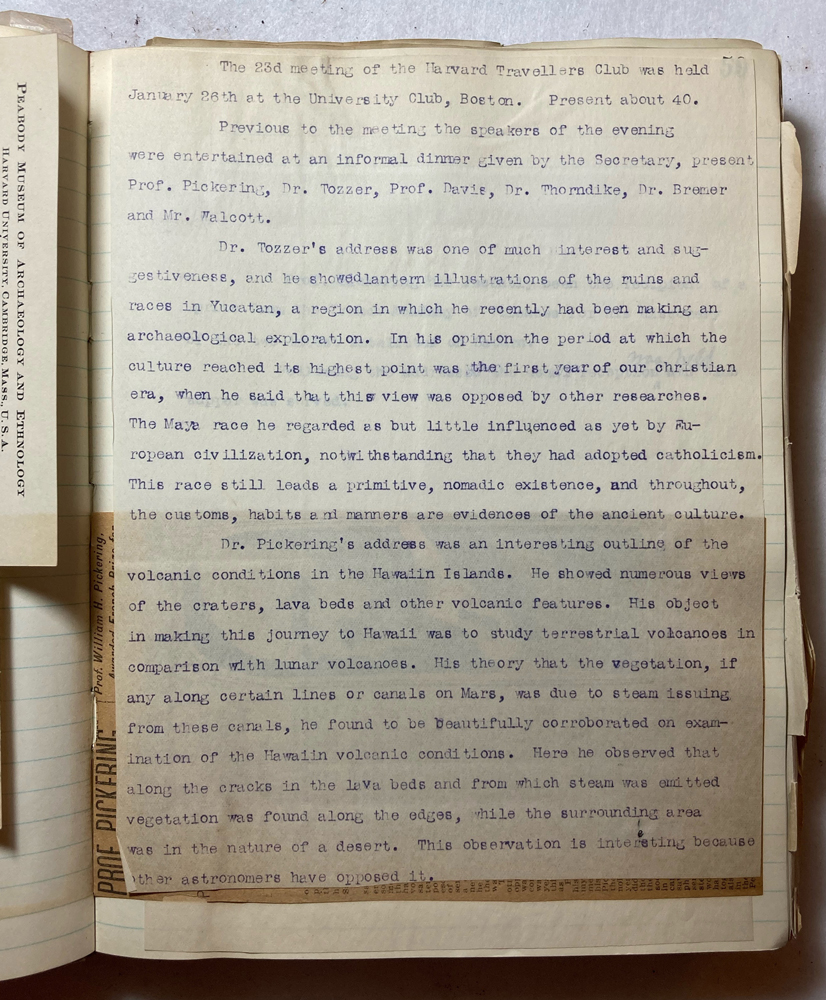 PEABODY MUSEUM OF ARCHAEOLOGY AND ETHNOLOGY
HARVARD UNIVERSITY, CAMBRIDGE, MASS., U.S.A.
The 23d meeting of the Harvard Travellers Club was held
January 26th at the University Club, Boston. Present about 40.
Previous to the meeting the speakers of the evening
were entertained at an informal dinner given by the Secretary, present
Prof. Pickering, Dr. Tozzer, Prof. Davis, Dr. Thorndike, Dr. Bremer
and Mr. Walcott.
Dr. Tozzer's address was one of much interest and sug-
gestiveness, and he showedlantern illustrations of the ruins and
races in Yucatan, a region in which he recently had been making an
archaeological exploration. In his opinion the period at which the
culture reached its highest point was the first year of our christian
era, when he said that this view was opposed by other researches.
The Maya race he regarded as but little influenced as yet by Eu-
ropean civilization, notwithstanding that they had adopted catholicism.
This race still leads a primitive, nomadic existence, and throughout,
the customs, habits and manners are evidences of the ancient culture.
Dr. Pickering's address was an interesting outline of the
volcanic conditions in the Hawaiin Islands. He showed numerous views
of the craters, lava beds and other volcanic features. His object
in making this journey to Hawaii was to study terrestrial volcanoes in
comparison with lunar volcanoes. His theory that the vegetation, if
any along certain lines or canals on Mars, was due to steam issuing
from these canals, he found to be beautifully corroborated on exam-
ination of the Hawaiin volcanic conditions. Here he observed that
along the cracks in the lava beds and from which steam was emitted
vegetation was found along the edges, while the surrounding area
was in the nature of a desert. This observation is interesting because
other astronomers have opposed it.
Prof. William H. Pickering.
PROF PICKERING